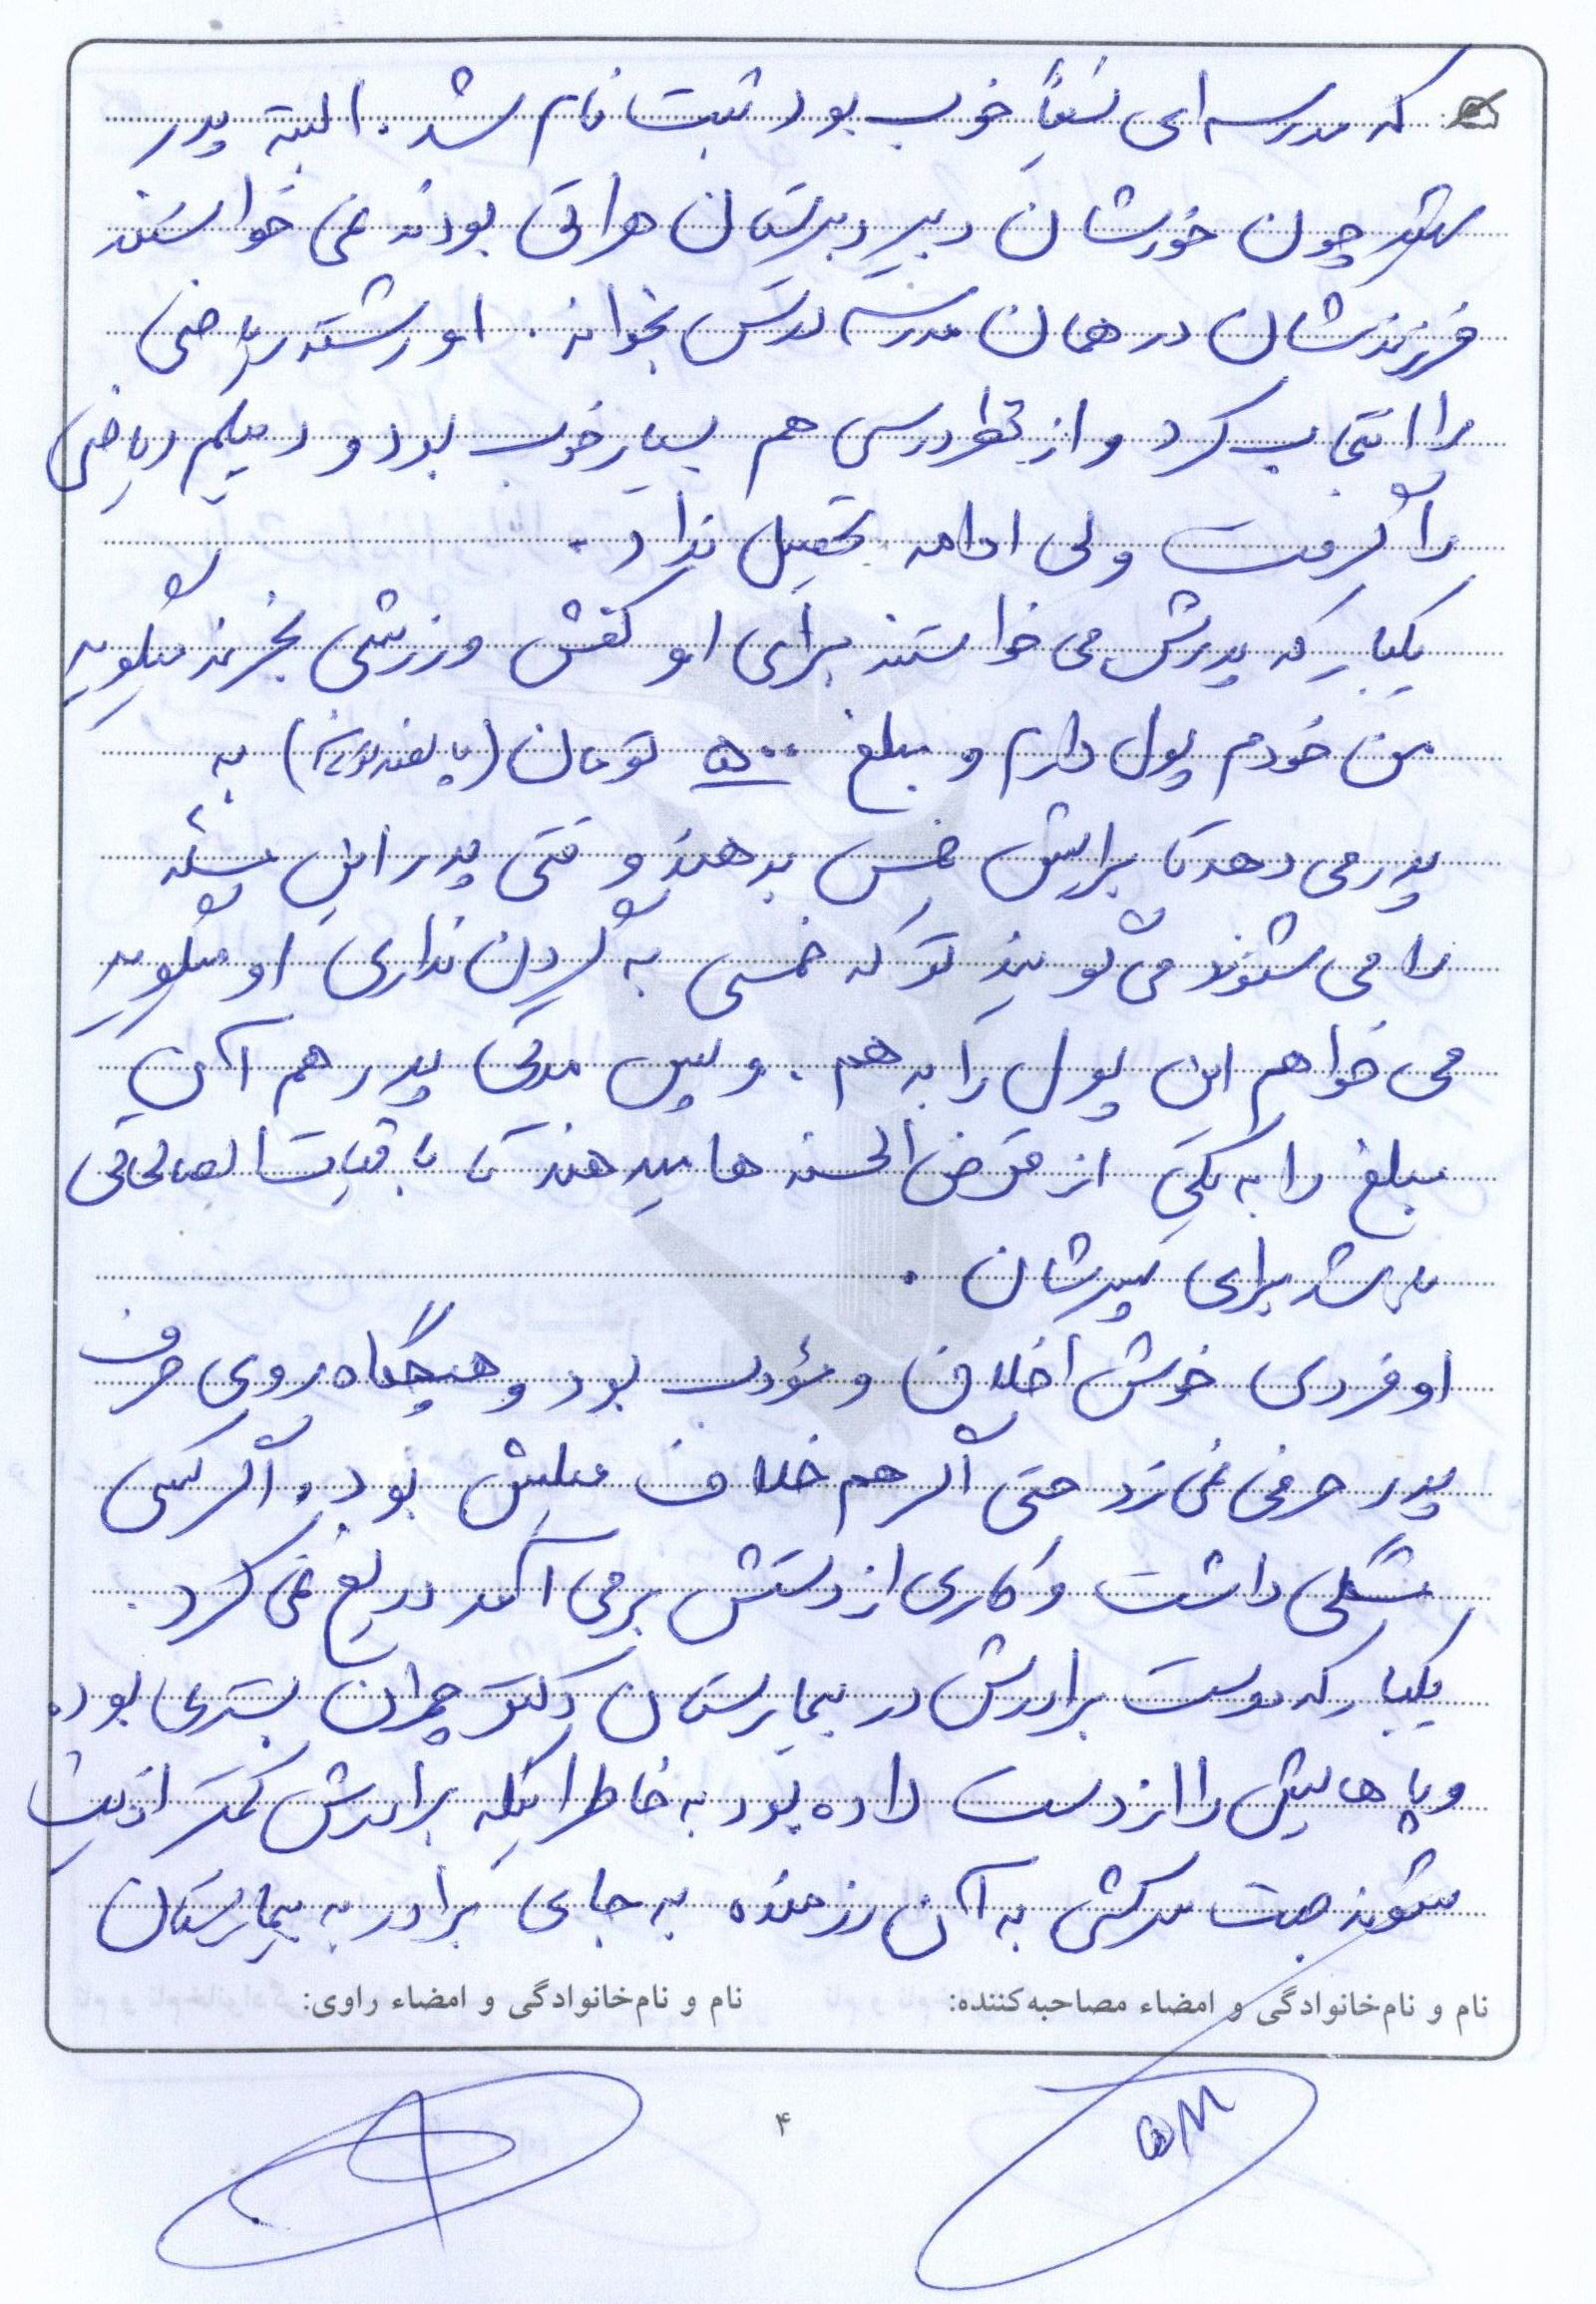 که مدرسه ای نسبتاً خوب بود ثبت نام شد. البته پدر
شهید چون خودشان دبیر دبیرستان هراتی بودند نمی خواستند
فرزندشان در همان مدرسه درس بخواند. او رشته ریاضی
را انتخاب کرد و از نظر درسی هم بسیار خوب بود و دیپلم ریاضی
را گرفت ولی ادامه تحصیل نداد.
یکبار که پدرش می خواستند برای او کفش ورزشی بخرند میگوید
من خودم پول دارم و مبلغ ۵۰۰ تومان (پانصد تومان) به
پدر می دهد تا برایش خمس بدهند وقتی پدر این مسئله
را می شنوند می گویند تو که خمسی به گردن نداری او میگوید
می خواهم این پول را بدهم. و پس مدتی پدر هم آن
مبلغ را به یکی از قرض الحسنه ها میدهند تا باقیات الصالحاتی
باشد برای پسرشان.
او فردی خوش اخلاق و مؤدب بود و هیچگاه روی حرف
پدر حرفی نمی زد حتی اگر هم خلاف میلش بود. اگر کسی
مشکلی داشت و کاری از دستش برمی آمد دریغ نمی کرد.
یکبار که دوست برادرش در بیمارستان دکتر چمران بستری بوده
و پاهایش را از دست داده بود به خاطر اینکه برادرش کمتر اذیت
شوند جهت سرکشی به آن رزمنده به جای برادر به بیمارستان
نام و نام‌خانوادگی و امضاء مصاحبه‌کننده: نام و نام‌خانوادگی و امضاء راوی:
۴